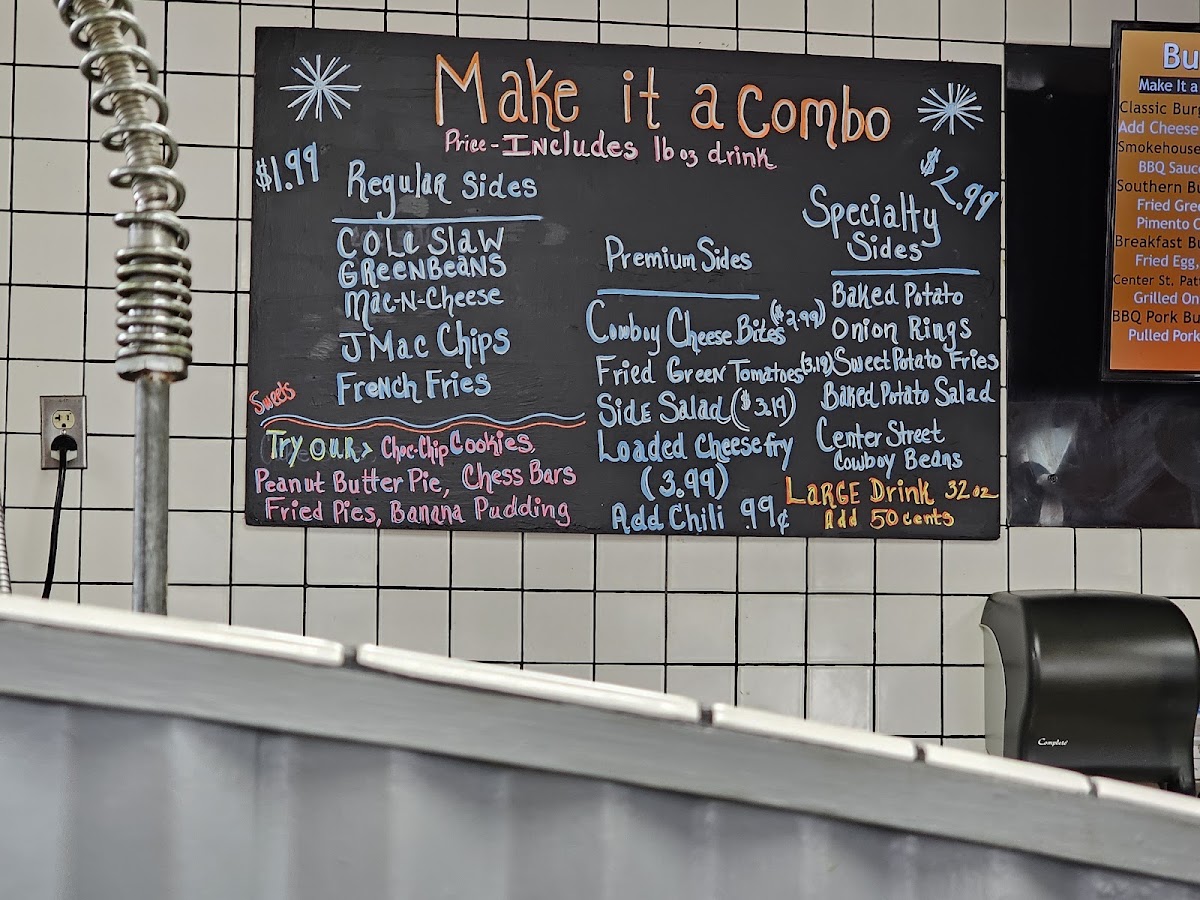 Make it a Combo
Price - Includes 16 oz drink
$1.99
Regular Sides
Cole Slaw
GreenBeans
Mac-N-Cheese
J Mac Chips
French Fries
Sweets
Try our > Choc-Chip Cookies,
Peanut Butter Pie, Chess Bars
Fried Pies, Banana Pudding
Premium Sides
Cowboy Cheese Bites ($2.99)
Fried Green Tomatoes (3.19)
Side Salad ($3.19)
Loaded Cheese fry
(3.99)
Add Chili .99¢
$2.99
Specialty
Sides
Baked Potato
Onion Rings
Sweet Potato Fries
Baked Potato Salad
Center Street
Cowboy Beans
LARGE Drink 32oz
Add 50 cents
Bu
Make It a
Classic Burg
Add Cheese
Smokehouse
BBQ Sauc
Southern Bu
Fried Gre
Pimento C
Breakfast Bu
Fried Egg,
Center St. Pat
Grilled On
BBQ Pork Bu
Pulled Pork
Complete